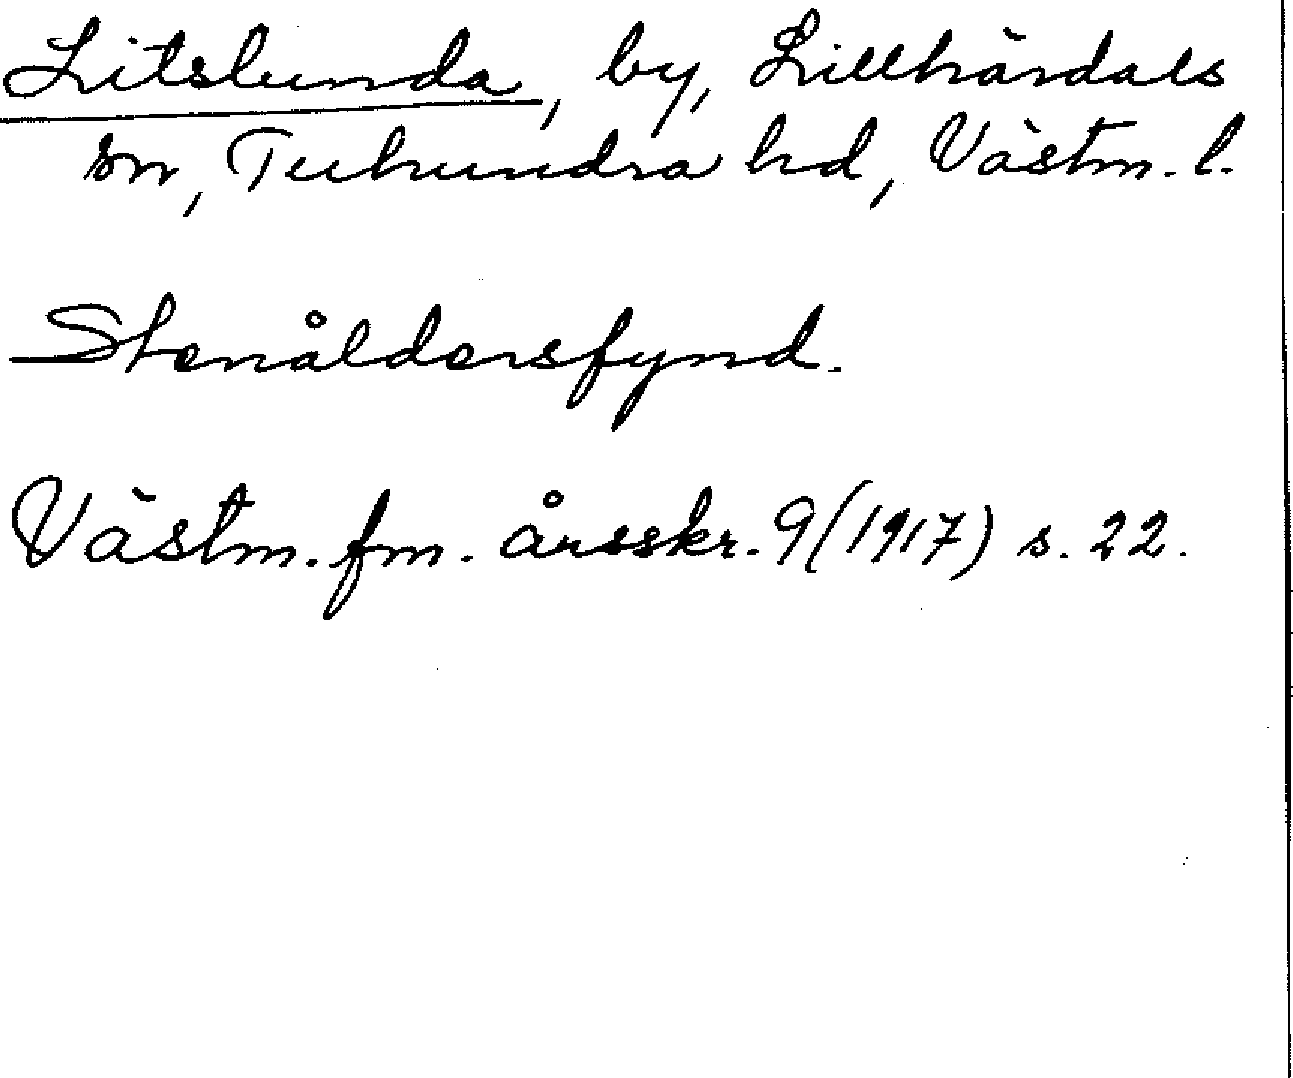 Litslunda, by, Lillhärdals
sn, Tuhundra hd, Västm. l.
Stenåldersfynd.
Västm. fm. årsskr. 9 (1917) s. 22.